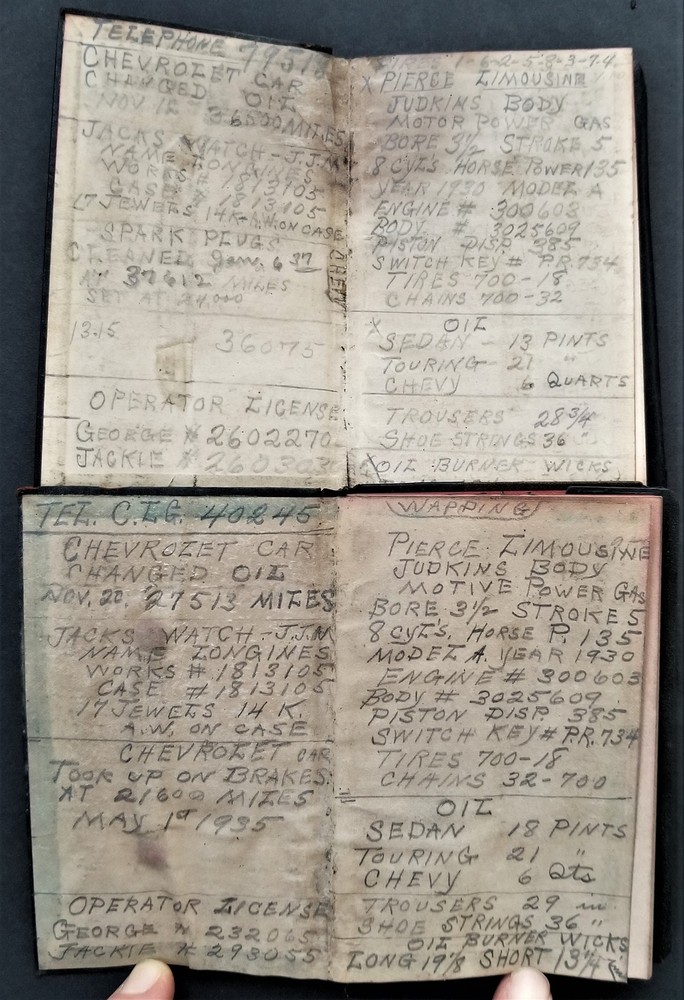 TELEPHONE
CHEVROLET CAR
CHANGED OIL
NOV 12 36500 MILES
JACKS WATCH - J.J.M
NAME LONGINES
WORKS # 1813105
CASE # 1813105
17 JEWELS 14K-A.W. ON CASE
SPARK PLUGS
CLEANED Jan. 6 37
AT 37612 MILES
SET AT 24,000
CHEVY
13.15 36075
OPERATOR LICENSE
GEORGE # 2602270
JACKIE #
TIRES 1-6-2-5-8-3-7-4
X PIERCE LIMOUSINE
JUDKINS BODY
MOTOR POWER GAS
BORE 3 1/2 STROKE 5
8 CYL'S HORSE POWER 135
YEAR 1930 MODEL A
ENGINE # 300603
BODY # 3025609
PISTON DISP. 385
SWITCH KEY # P.R. 734
TIRES 700-18
CHAINS 700-32
X OIL
SEDAN - 13 PINTS
TOURING 21 "
CHEVY 6 QUARTS
TROUSERS 28 3/4
SHOE STRINGS 36 "
X OIL BURNER WICKS
TEL. C.I.G. 40245
CHEVROLET CAR
CHANGED OIL
NOV. 20. 27513 MILES
JACKS WATCH - J.J.M
NAME LONGINES
WORKS # 1813105
CASE # 1813105
17 JEWELS 14 K.
A.W. ON CASE
CHEVROLET CAR
TOOK UP ON BRAKES
AT 21600 MILES
MAY 1st 1935
OPERATOR LICENSE
GEORGE # 232065
JACKIE # 293055
(WAPPING)
PIERCE LIMOUSINE
JUDKINS BODY
MOTIVE POWER GAS
BORE 3 1/2 STROKE 5
8 CYL'S. HORSE P. 135
MODEL A. YEAR 1930
ENGINE # 300603
BODY # 3025609
PISTON DISP. 385
SWITCH KEY # P.R. 734
TIRES 700-18
CHAINS 32-700
OIL
SEDAN 18 PINTS
TOURING 21 "
CHEVY 6 Qts
TROUSERS 29 in.
SHOE STRINGS 36 "
OIL BURNER WICKS
LONG 19 1/8 SHORT 13 1/4